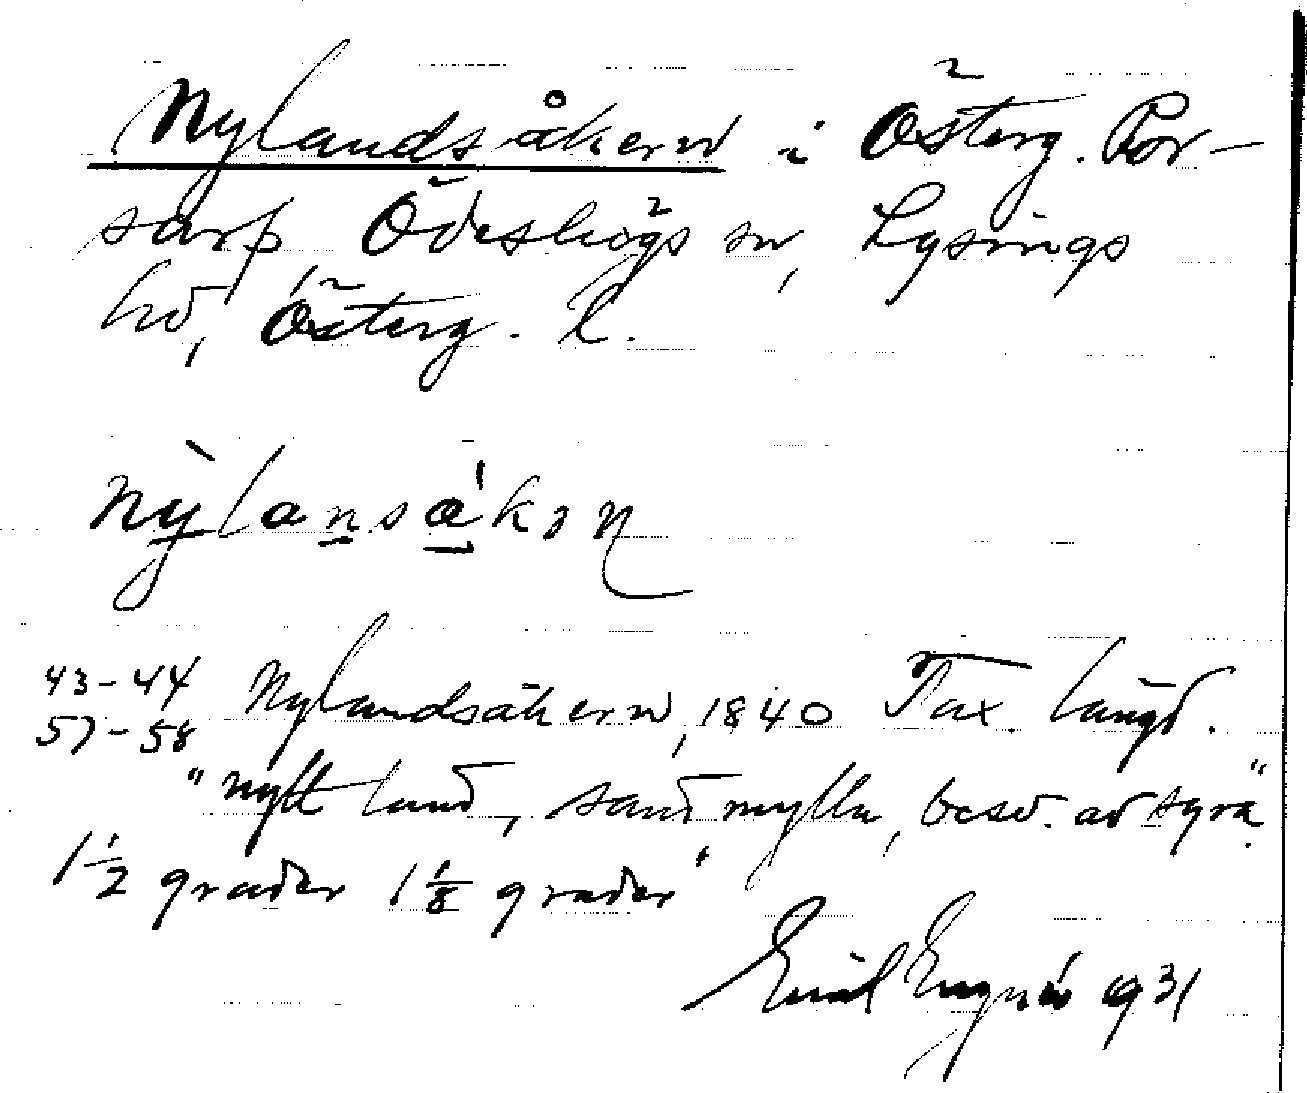 Nylandsåkern i Österg. Por-
sarp Ödeshögs sn, Lysings
hd, Österg. L.
nỳlansåkən
43-44 Nylandsåkern, 1840 Tax. längd.
57-58
"nytt land, sand mylla, besv. av syra".
1 1/2 grader 1 1/8 grader"
Emil 1931